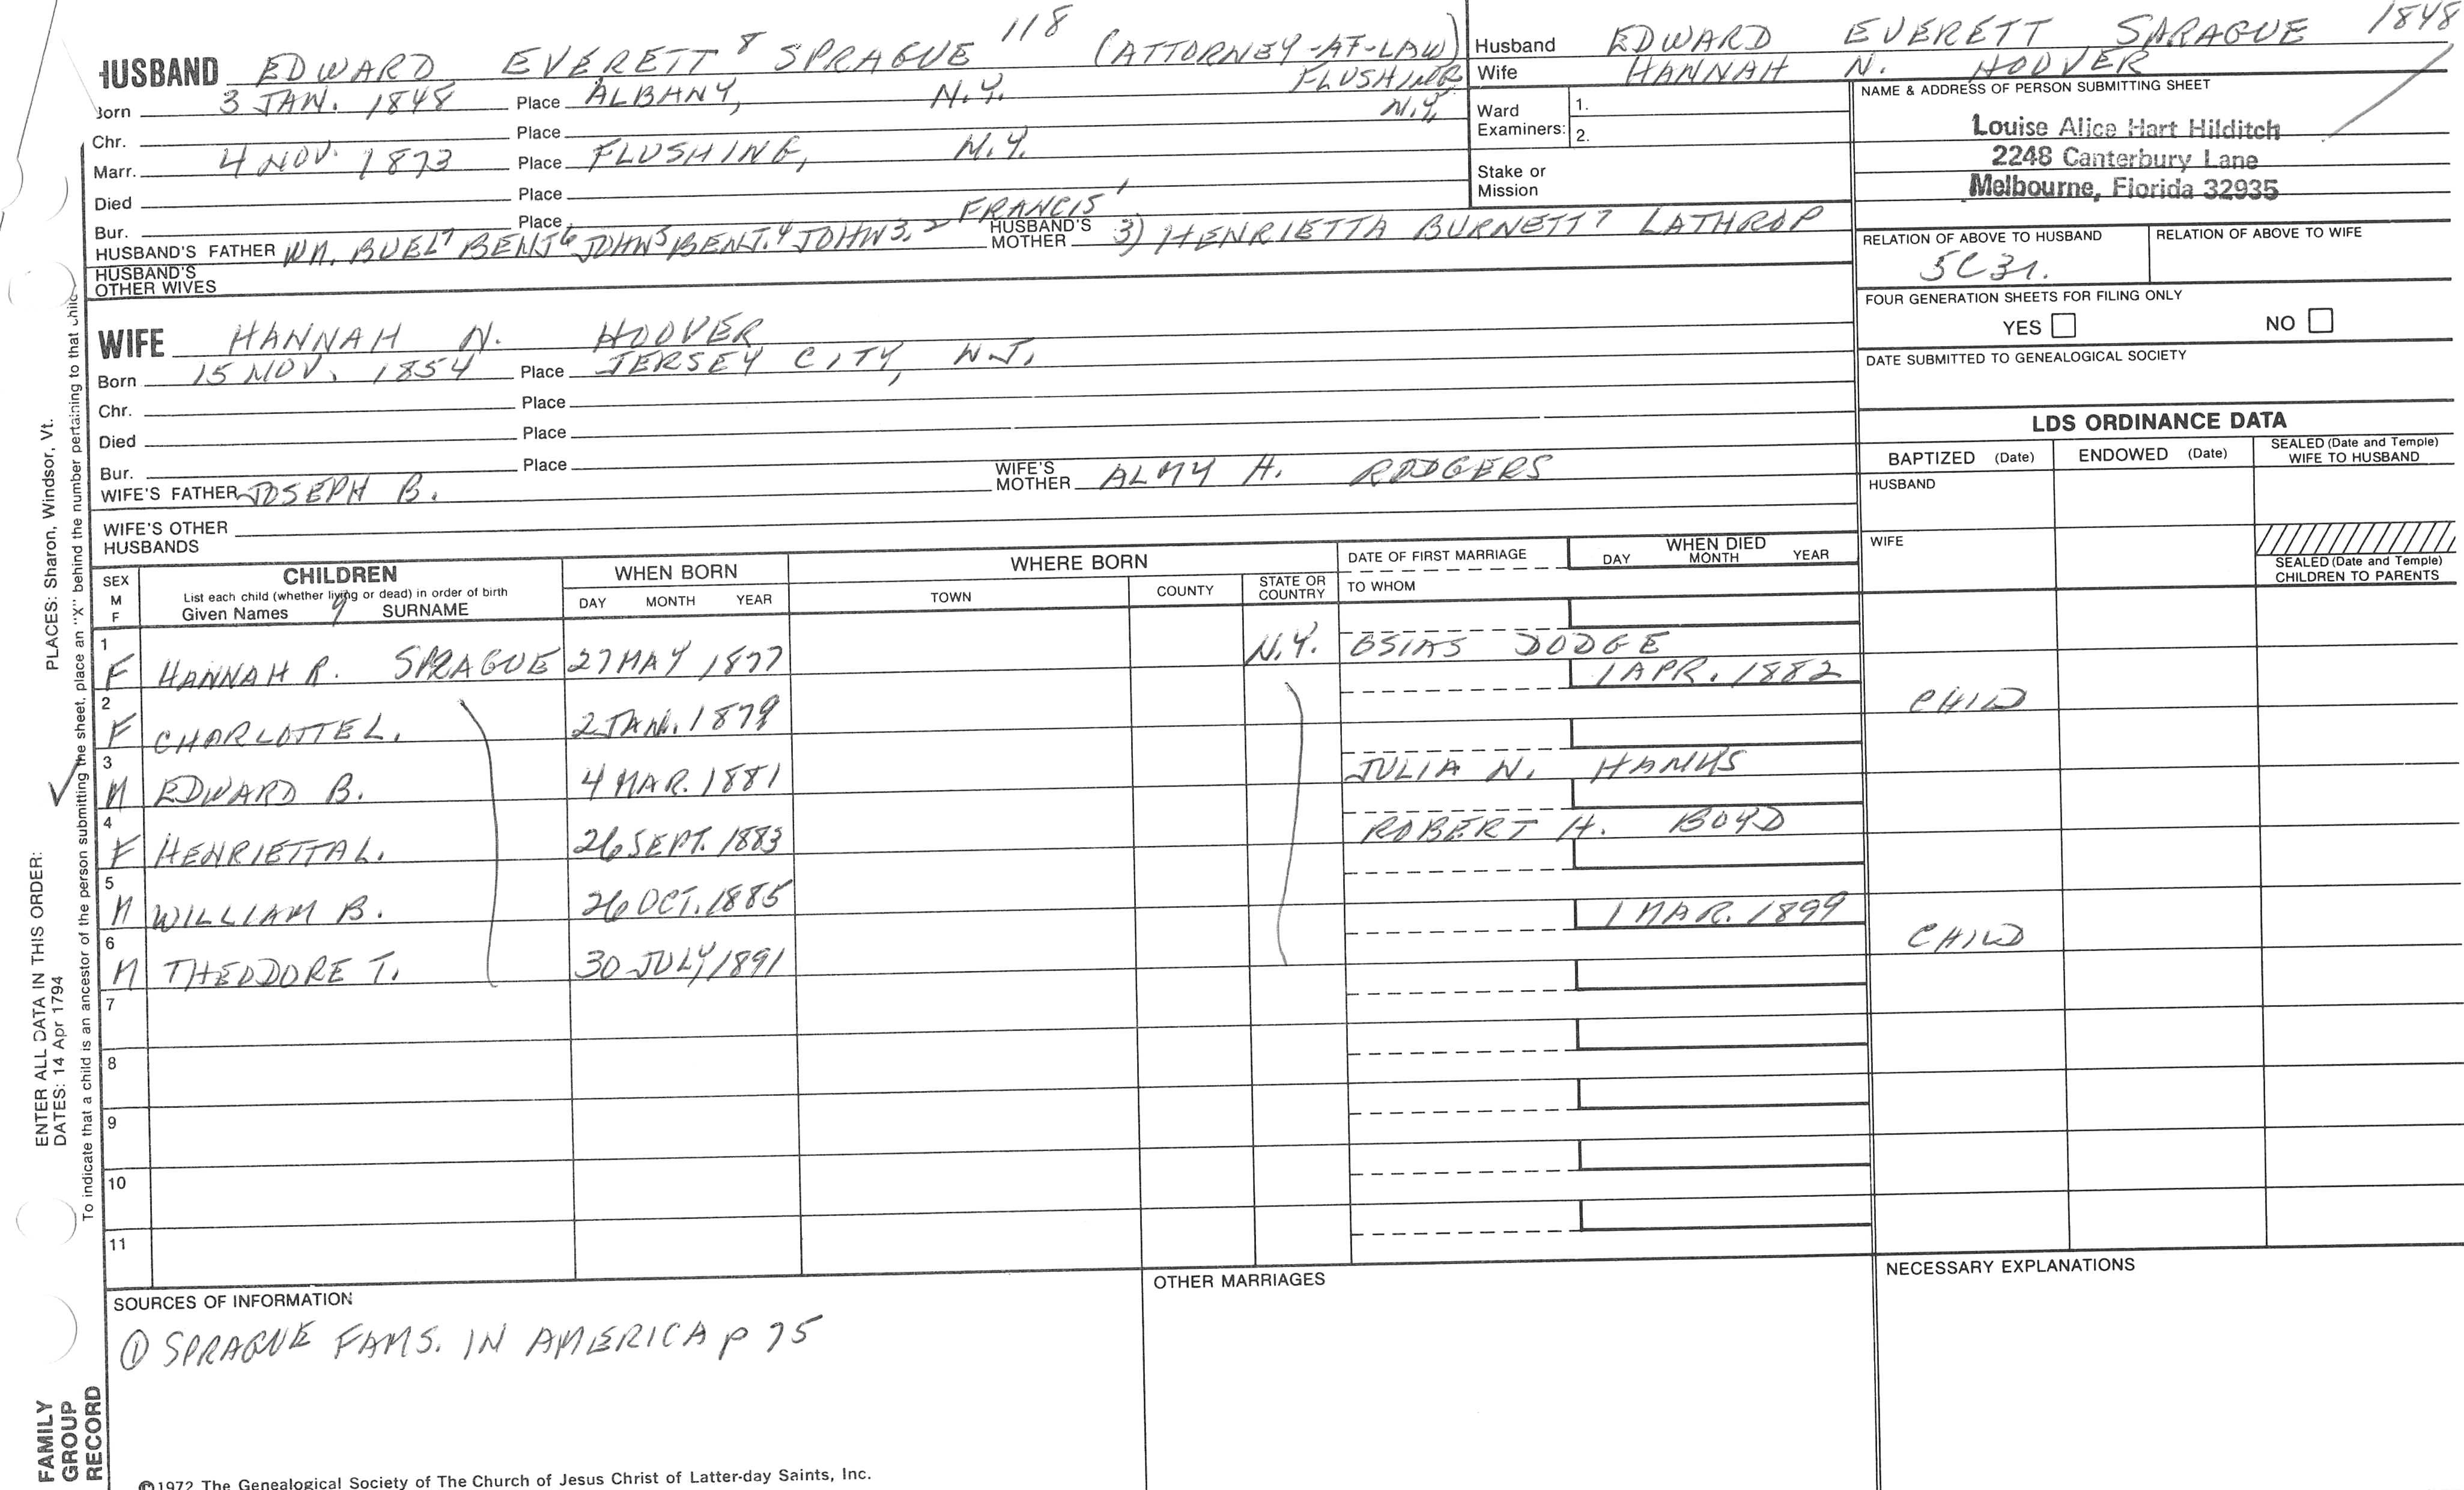 HUSBAND EDWARD EVERETT 8 SPRAGUE 118 (ATTORNEY-AT-LAW)
FLUSHING
N.Y.
Born 3 JAN. 1848 Place ALBANY, N.Y.
Chr. Place
Marr. 4 NOV. 1873 Place FLUSHING, N.Y.
Died Place
Bur. Place
HUSBAND'S FATHER WM. BUEL7 BENJ6 JOHN5 BENJ.4 JOHN3,2 FRANCIS1 HUSBAND'S MOTHER 3) HENRIETTA BURNETT7 LATHROP
HUSBAND'S OTHER WIVES
WIFE HANNAH N. HOOVER
Born 15 NOV. 1854 Place JERSEY CITY, N.J.
Chr. Place
Died Place
Bur. Place
WIFE'S FATHER JOSEPH B. WIFE'S MOTHER ALMY H. RODGERS
WIFE'S OTHER HUSBANDS
Husband EDWARD EVERETT SPRAGUE 1848
Wife HANNAH N. HOOVER
Ward Examiners: 1.
2.
Stake or Mission
NAME & ADDRESS OF PERSON SUBMITTING SHEET
Louise Alice Hart Hilditch
2248 Canterbury Lane
Melbourne, Florida 32935
RELATION OF ABOVE TO HUSBAND RELATION OF ABOVE TO WIFE
5C3r.
FOUR GENERATION SHEETS FOR FILING ONLY
YES NO
DATE SUBMITTED TO GENEALOGICAL SOCIETY
LDS ORDINANCE DATA
BAPTIZED (Date) ENDOWED (Date) SEALED (Date and Temple) WIFE TO HUSBAND
HUSBAND
WIFE
SEALED (Date and Temple) CHILDREN TO PARENTS
SEX M F CHILDREN WHEN BORN WHERE BORN DATE OF FIRST MARRIAGE WHEN DIED
List each child (whether living or dead) in order of birth
Given Names 9 SURNAME DAY MONTH YEAR TOWN COUNTY STATE OR COUNTRY TO WHOM DAY MONTH YEAR
1 F HANNAH R. SPRAGUE 27 MAY 1877 N.Y. OSIAS DODGE
2 F CHARLOTTE L. 2 JAN. 1879 1 APR. 1882 CHILD
3 M EDWARD B. 4 MAR. 1881 JULIA N. HANUS
4 F HENRIETTA L. 26 SEPT. 1883 ROBERT H. BOYD
5 M WILLIAM B. 26 OCT. 1885
6 M THEODORE T. 30 JULY 1891 1 MAR. 1899 CHILD
7
8
9
10
11
SOURCES OF INFORMATION
① SPRAGUE FAMS. IN AMERICA p 75
OTHER MARRIAGES
NECESSARY EXPLANATIONS
©1972 The Genealogical Society of The Church of Jesus Christ of Latter-day Saints, Inc.
FAMILY GROUP RECORD
ENTER ALL DATA IN THIS ORDER:
DATES: 14 Apr 1794 PLACES: Sharon, Windsor, Vt.
To indicate that a child is an ancestor of the person submitting the sheet, place an "X" behind the number pertaining to that child